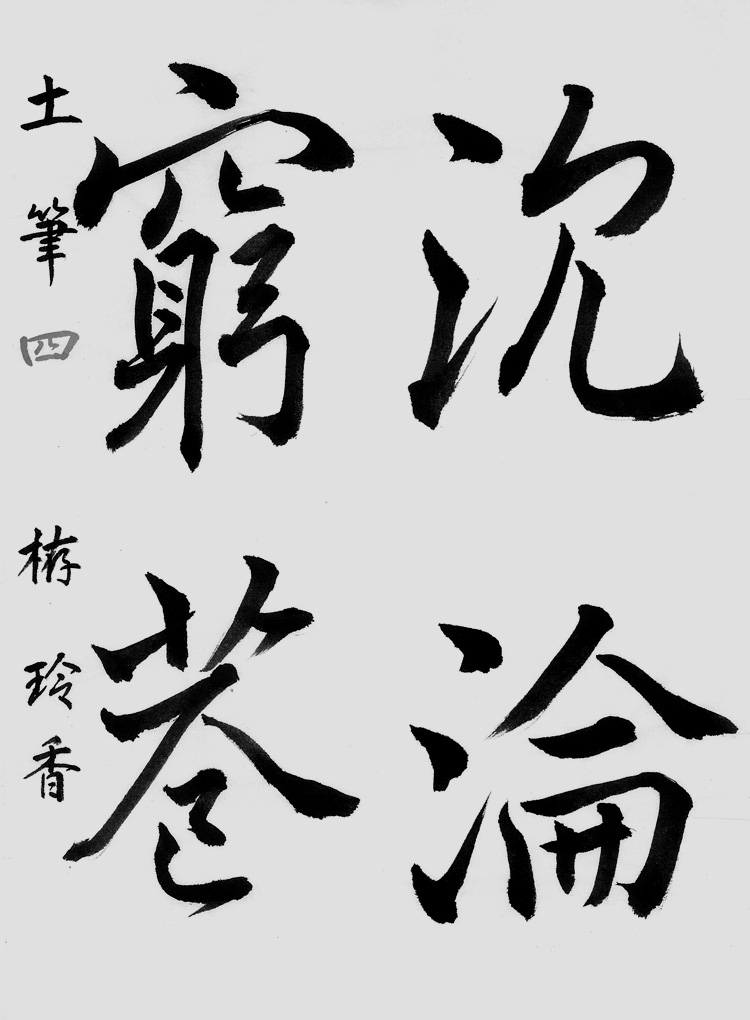 沈淪
窮巷
土筆四 栫玲香